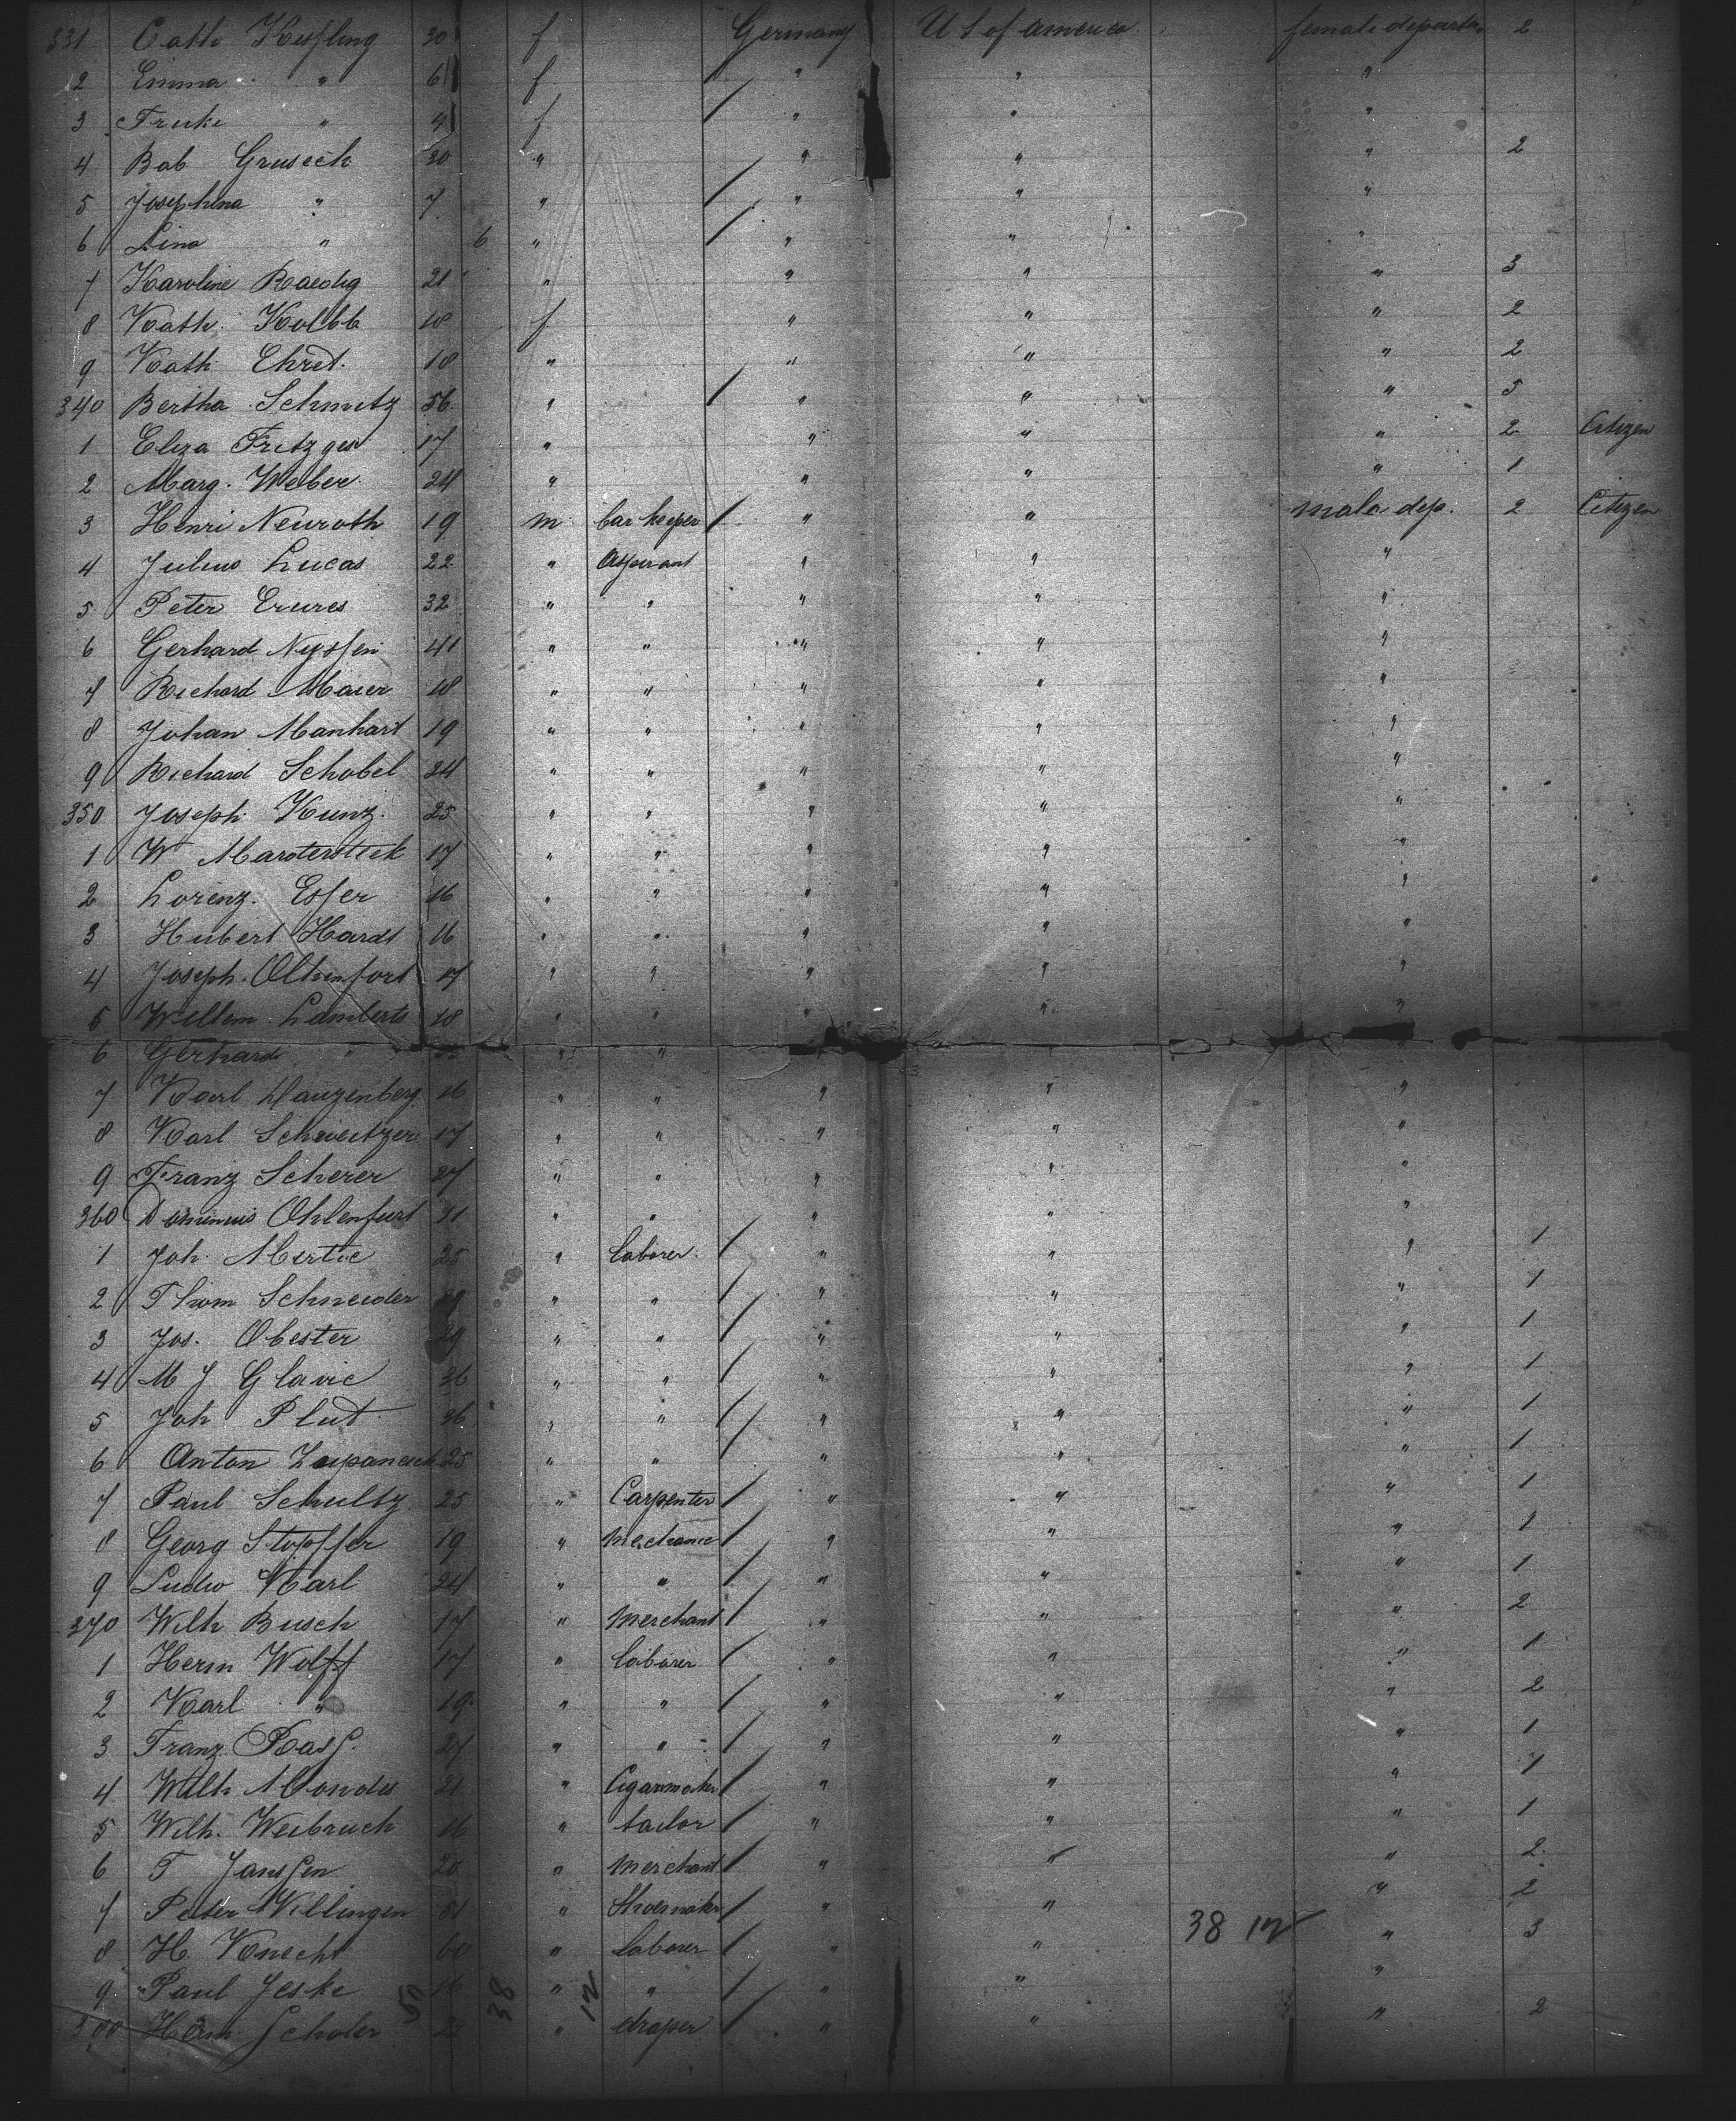 331 Cath Kesfling 30 f Germany U S of america female departm 2
2 Emma " 6 f " " "
3 " 4 f " " "
4 Bab Gruseck 30 " " " " 2
5 Josephina " 7 " " " "
6 Lina " 6 " " " "
7 Karoline Raedig 21 " " " " 3
8 Kath. Kolbb 18 f " " " 2
9 Kath Ehret. 18 " " " " 2
340 Bertha Schmitz 56 " " " " 5
1 Eliza Fritzges 17 " " " " 2 Citizen
2 Marg. Weber 24 " " " " 1
3 Henri Neuroth 19 m barkeeper " " male dep. 2 Citizen
4 Julius Lucas 22 " Aspirant " " "
5 Peter 32 " " " " "
6 Gerhard Nyssen 41 " " " " "
7 Richard Maier 18 " " " " "
8 Johan Manhart 19 " " " " "
9 Richard Schobel 24 " " " " "
350 Joseph Kunz. 25 " " " " "
1 W Marterstek 17 " " " " "
2 Lorenz. Esser 16 " " " " "
3 Hubert Hardt 16 " " " " "
4 Joseph. 17 " " " " "
5 Willem Lamberts 18 " " " " "
6 Gerhard " " " " "
7 Karl Danzenberg 16 " " " " "
8 Karl Schweitzer 17 " " " " "
9 Franz Scherer 27 " " " " "
360 Ohlenfurt " " " " "
1 Joh. Mertic 25 " laborer " " " 1
2 Thom Schneider " " " " " 1
3 Jos. Obester " " " " " 1
4 M J Glavic 36 " " " " " 1
5 Joh Plut 36 " " " " " 1
6 Anton 25 " " " " " 1
7 Paul Schultz 25 " Carpenter " " " 1
8 Georg Stopffer 19 " mechanic " " " 1
9 Ludw Karl 24 " " " " " 1
370 Wilh Busch 17 " merchant " " " 2
1 Herm Wolff 17 " laborer " " " 1
2 Karl " 19 " " " " " 2
3 Franz 27 " " " " " 1
4 Wilh Mondes 21 " Cigarmaker " " " 1
5 Wilh. Weibruch 16 " tailor " " " 1
6 T Janssen 20 " merchant " " " 2
7 Peter Willingen 51 " Shoemaker " " " 2
8 H. Knecht 60 " laborer " " 38 12 " 3
9 Paul Jeske 16 " " " " "
380 Herm. Scholer 22 " draper " " " 2
38 12